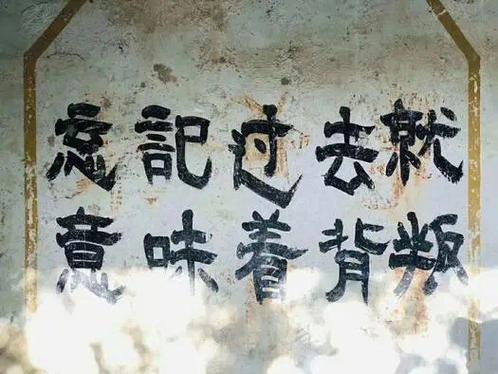 忘記过去就
意味着背叛